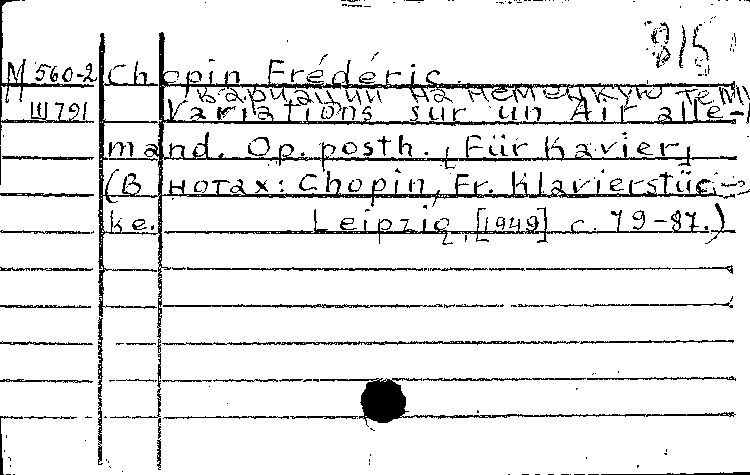 815
М 560-2 Chopin Frédéric
вариации на немецкую тему
Ш791 Variations sur un Air alle-
mand. Op. posth. [Für Kavier]
(В нотах: Chopin, Fr. Klavierstüc-
ke. Leipzig, [1949] с. 79-87.)